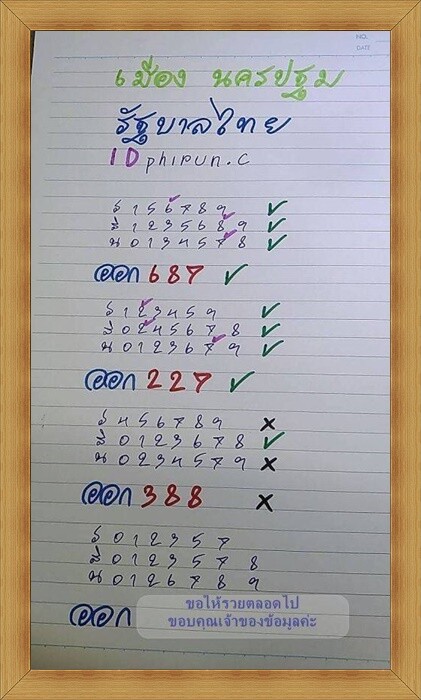 NO.
DATE
6 เมือง นครปฐม
รัฐบาลไทย
ID phipun.c
ร 1 5 6 7 8 9 ✓
สิ 1 2 3 5 6 8 9 ✓
น 0 1 3 4 5 7 8 ✓
ออก 687 ✓
ร 1 2 3 4 5 9 ✓
สิ 0 2 4 5 6 7 8 ✓
น 0 1 2 3 6 7 9 ✓
ออก 227 ✓
ร 4 5 6 7 8 9 ×
สิ 0 1 2 3 6 7 8 ✓
น 0 2 3 4 5 7 9 ×
ออก 388 ×
ร 0 1 2 3 5 7
สิ 0 1 2 3 5 7 8
น 0 1 2 6 7 8 9
ออก
ขอให้รวยตลอดไป
ขอบคุณเจ้าของข้อมูลค่ะ